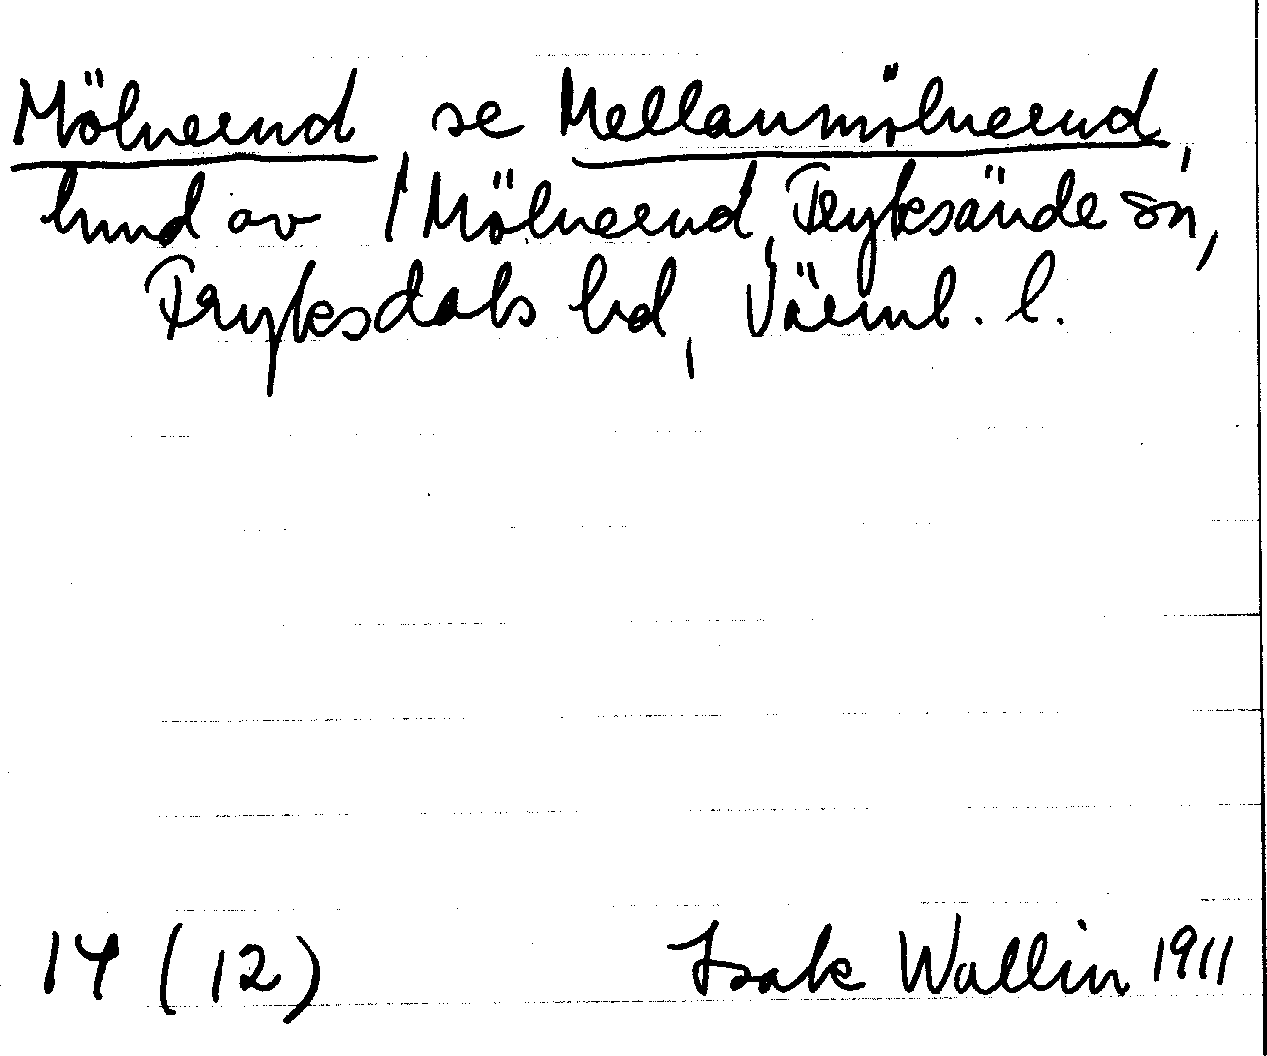 Mölnerud, se Mellanmölnerud,
hmd av 1 Mölnerud, Fryksände sn,
Fryksdals hd, Värml. l.
14 (12) Isak Wallin 1911